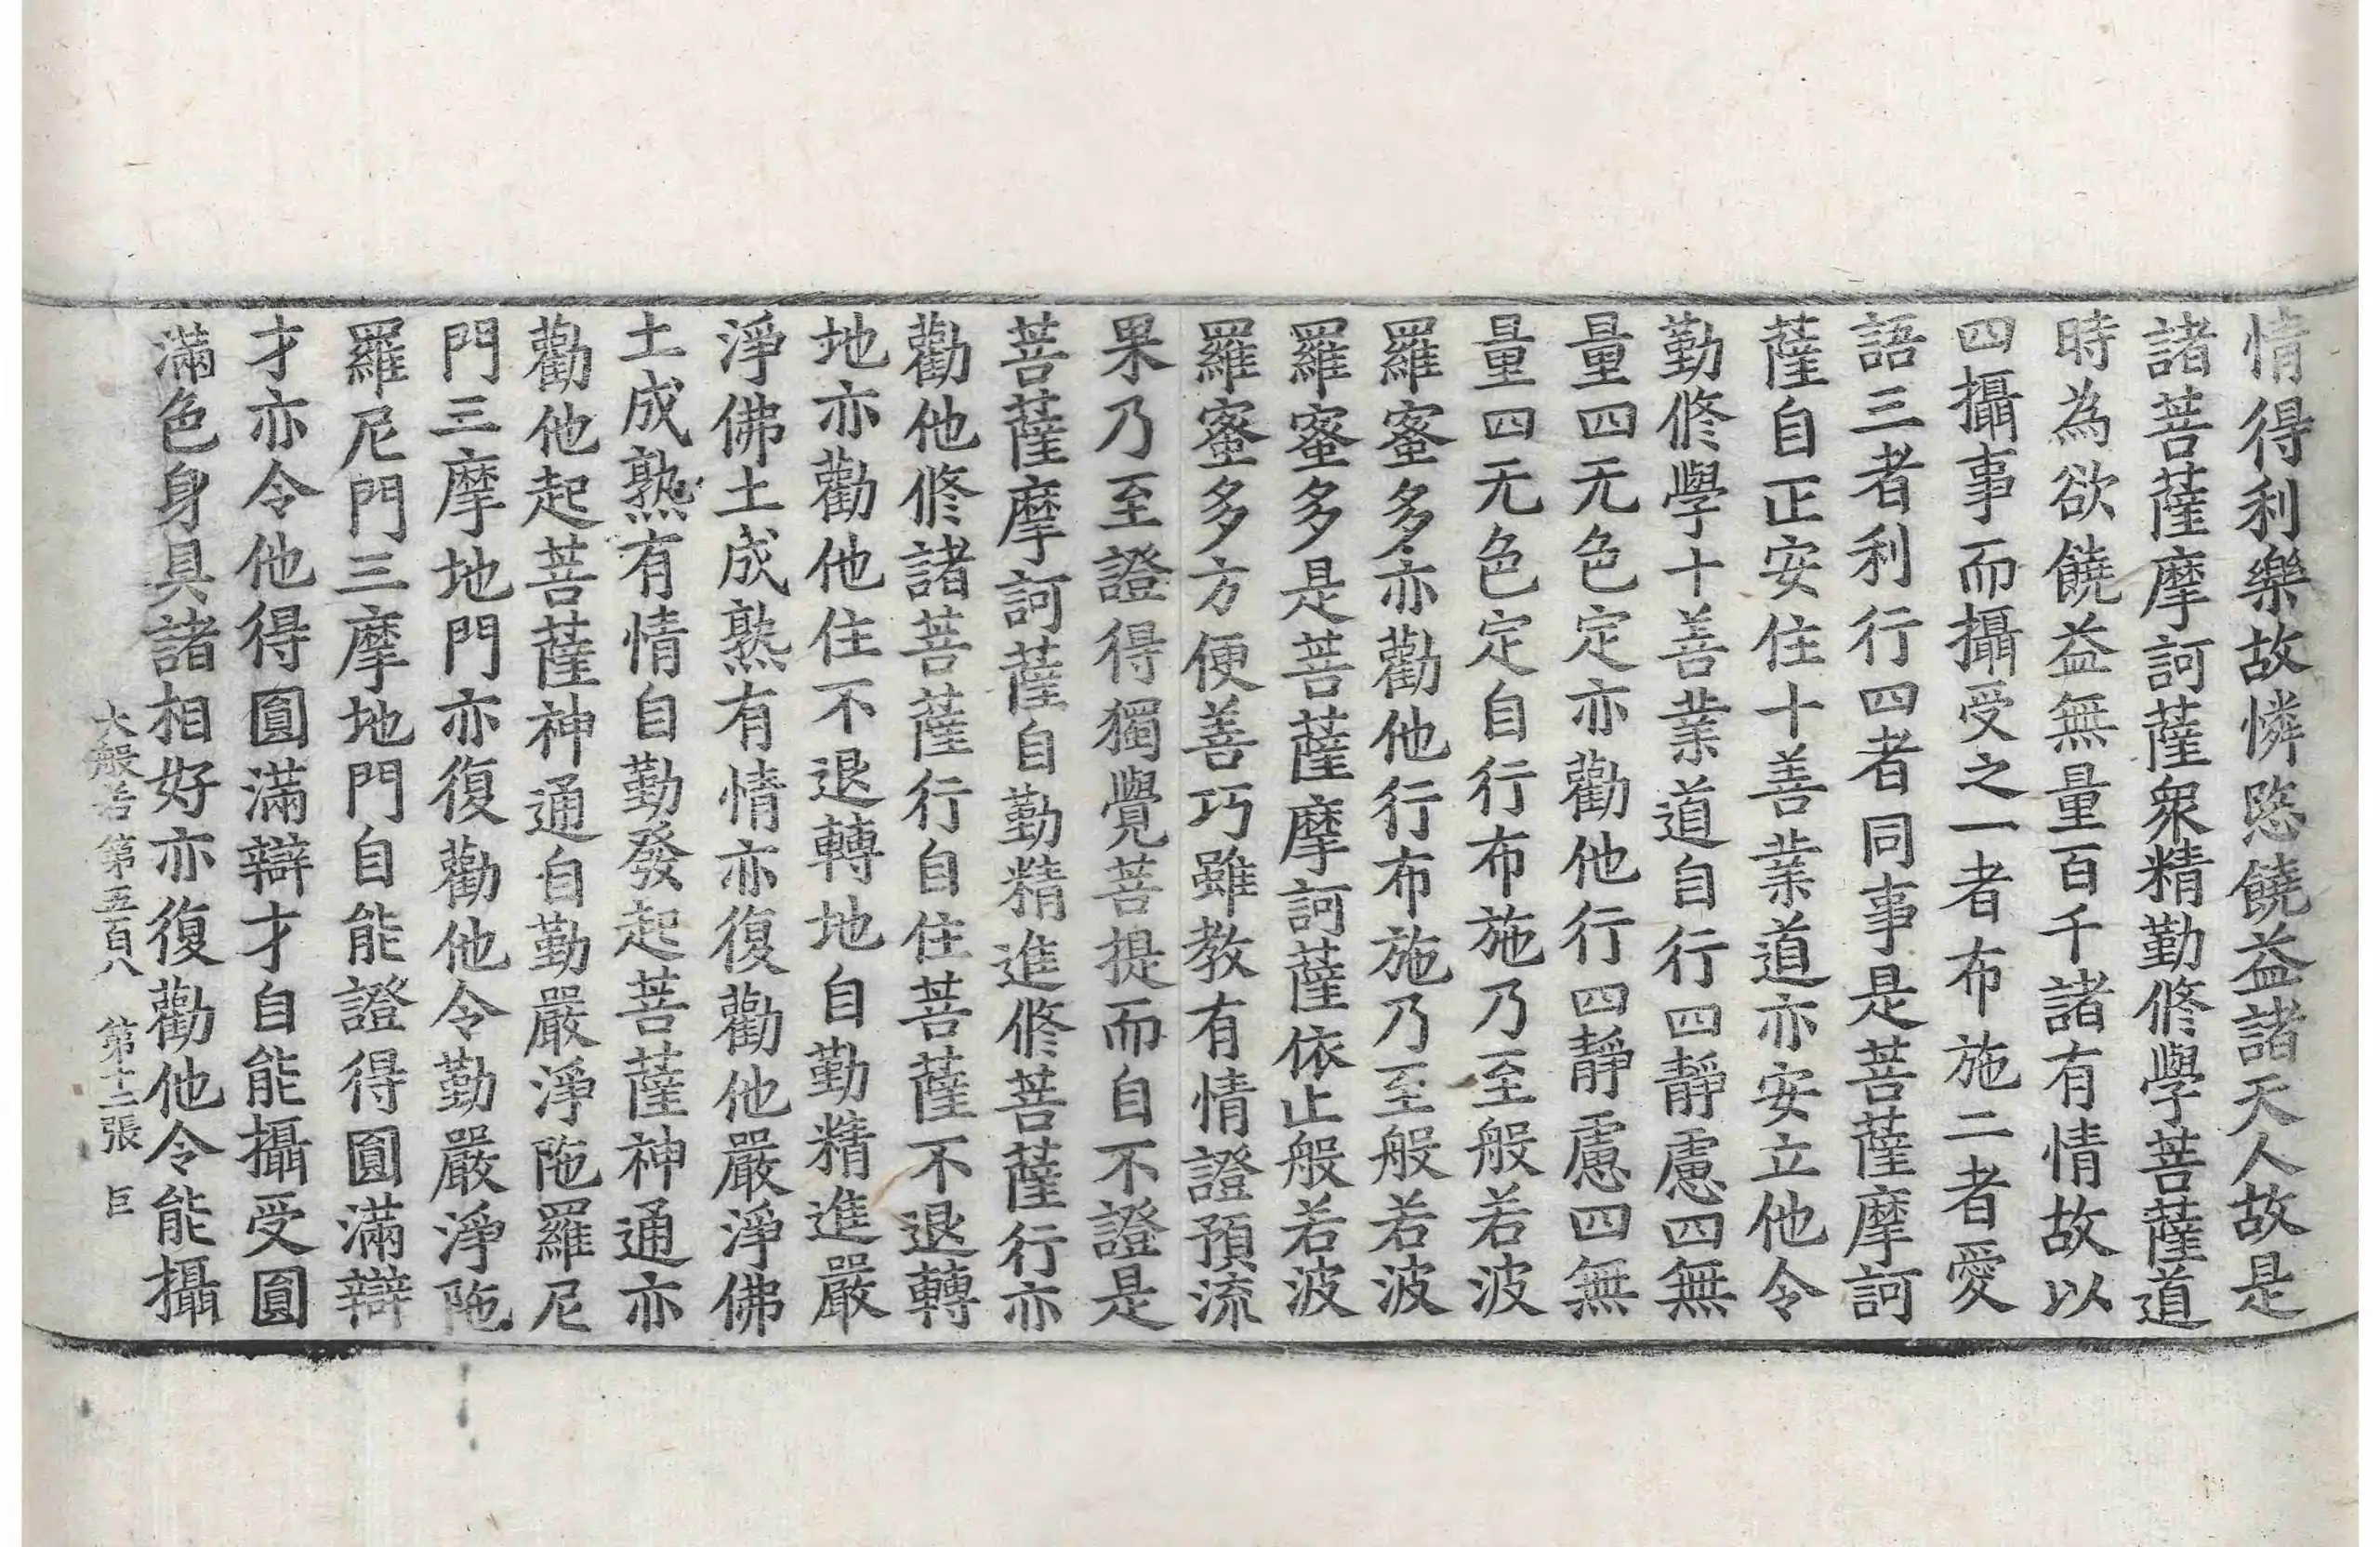 情得利樂故憐愍饒益諸天人故是
諸菩薩摩訶薩衆精勤修學菩薩道
時為欲饒益無量百千諸有情故以
四攝事而攝受之一者布施二者愛
語三者利行四者同事是菩薩摩訶
薩自正安住十善業道亦安立他令
勤修學十善業道自行四靜慮四無
量四无色定亦勸他行四靜慮四無
量四无色定自行布施乃至般若波
羅蜜多亦勸他行布施乃至般若波
羅蜜多是菩薩摩訶薩依止般若波
羅蜜多方便善巧雖教有情證預流
果乃至證得獨覺菩提而自不證是
菩薩摩訶薩自勤精進修菩薩行亦
勸他修諸菩薩行自住菩薩不退轉
地亦勸他住不退轉地自勤精進嚴
淨佛土成熟有情亦復勸他嚴淨佛
土成熟有情自勤發起菩薩神通亦
勸他起菩薩神通自勤嚴淨陁羅尼
門三摩地門亦復勸他令勤嚴淨陁
羅尼門三摩地門自能證得圓滿辯
才亦令他得圓滿辯才自能攝受圓
滿色身具諸相好亦復勸他令能攝
大般若第五百八 第十二張 巨